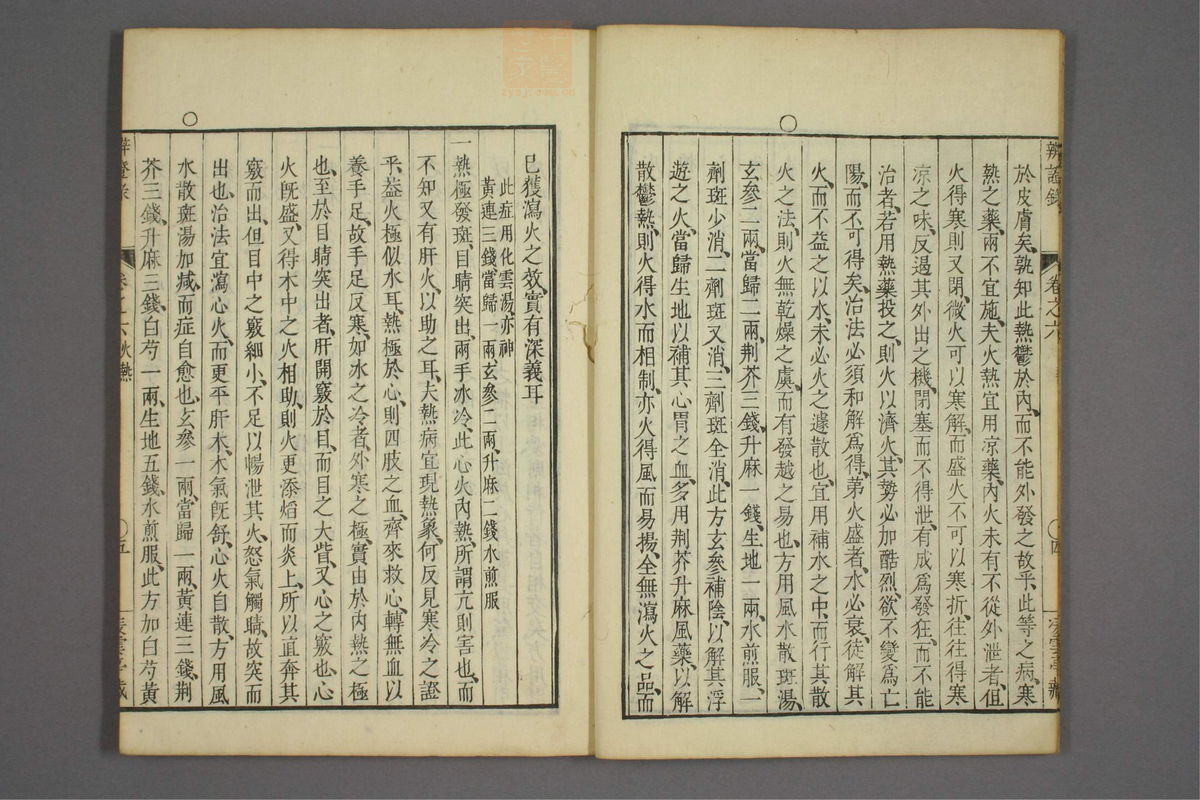 辨證錄
卷之六
○四
於皮膚矣、孰知此熱鬱於內、而不能外發之故乎、此等之病、寒
熱之藥、兩不宜施、夫火熱宜用凉藥、內火未有不從外泄者、但
火得寒則又閉、微火可以寒解、而盛火不可以寒折、往往得寒
凉之味、反遏其外出之機、閉塞而不得泄、有成爲發狂、而不能
治者、若用熱藥投之、則火以濟火、其勢必加酷烈、欲不變爲亡
陽、而不可得矣、治法必須和解爲得、苐火盛者、水必衰、徒解其
火、而不益之以水、未必火之遽散也、宜用補水之中、而行其散
火之法、則火無乾燥之虞、而有發越之易也、方用風水散斑湯、
玄參二兩、當歸二兩、荆芥三錢、升麻一錢、生地一兩、水煎服、一
劑斑少消、二劑斑又消、三劑斑全消、此方玄參補陰、以解其浮
遊之火、當歸生地以補其心胃之血、多用荆芥升麻風藥、以解
散鬱熱、則火得水而相制、亦火得風而易揚、全無瀉火之品、而
已獲瀉火之效、實有深義耳
此症用化雲湯亦神
黃連三錢當歸一兩玄參二兩升麻二錢水煎服
一熱極發斑、目睛突出、兩手冰冷、此心火內熱、所謂亢則害也、而
不知又有肝火、以助之耳、夫熱病宜現熱象、何反見寒冷之證
乎、葢火極似水耳、熱極於心、則四肢之血、齊來救心、轉無血以
養手足、故手足反寒、如冰之冷者、外寒之極、實由於內熱之極
也、至於目睛突出者、肝開竅於目、而目之大眥、又心之竅也、心
火旣盛、又得木中之火相助、則火更添熖而炎上、所以直奔其
竅而出、但目中之竅細小、不足以暢泄其火、怒氣觸睛、故突而
出也、治法宜瀉心火、而更平肝木、木氣旣舒、心火自散、方用風
水散斑湯加減、而症自愈也、玄參一兩、當歸一兩、黃連三錢、荆
芥三錢、升麻三錢、白芍一兩、生地五錢、水煎服、此方加白芍黃
卷之六火熱
○五